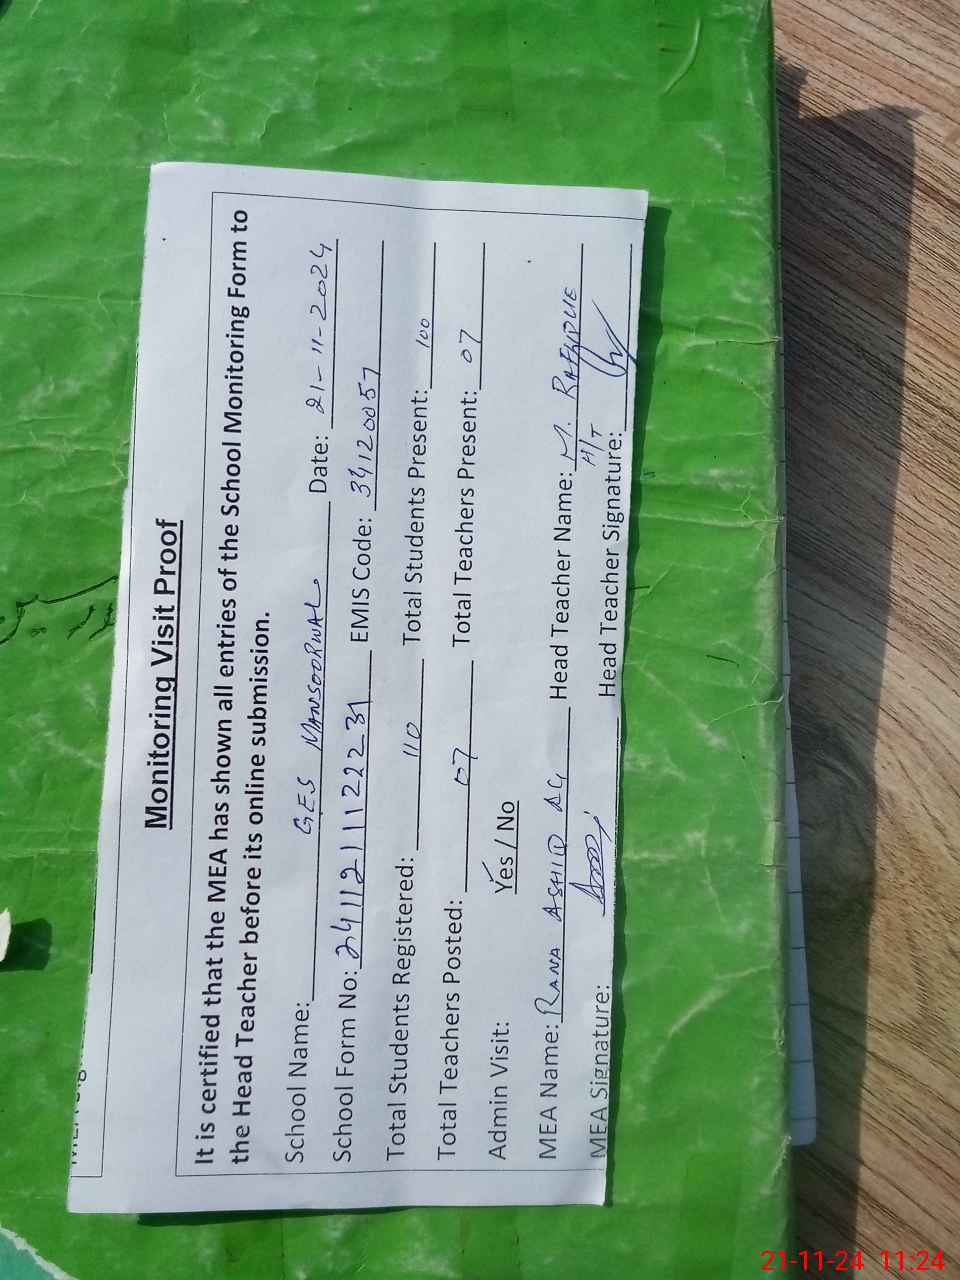 Monitoring Visit Proof
It is certified that the MEA has shown all entries of the School Monitoring Form to
the Head Teacher before its online submission.
School Name: GES MANSOORWAL Date: 21-11-2024
School Form No: EMIS Code: 34120057
Total Students Registered: 110 Total Students Present: 100
Total Teachers Posted: 07 Total Teachers Present: 07
Admin Visit: Yes / No
MEA Name: RANA ASHIQ ALI Head Teacher Name: M. RAFIQUE
H/T
MEA Signature: Head Teacher Signature:
21-11-24 11:24